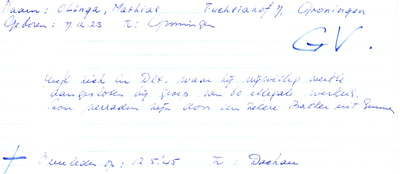 Naam: Olinga, Mathias Fuchsiahof 7. Groningen
Geboren: 7.12.23 te: Groningen
G V.
zich in Dec. waar hij vrijwillig werkte
aangesloten bij groep van de illegale werkers.
verraden zijn door een zekere Bakker uit
+ Overleden op: 12.5.'45 te: Dachau